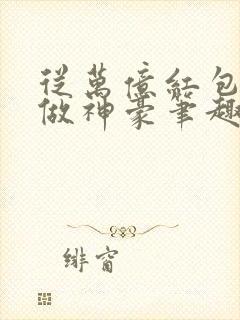 從萬億紅包
做神豪筆趣
緋窗